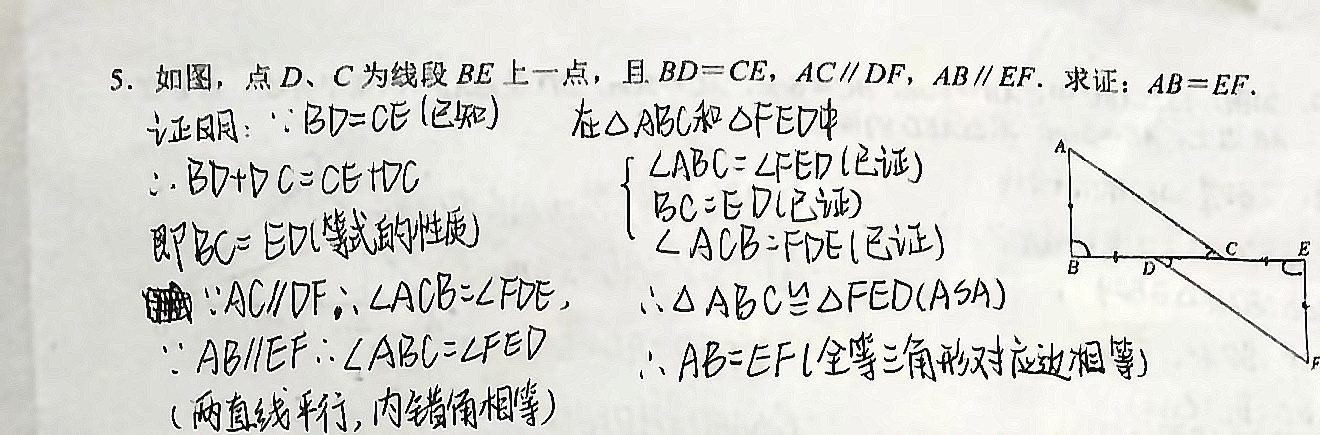 5. 如图，点 D、C 为线段 BE 上一点，且 BD=CE，AC∥DF，AB∥EF. 求证：AB=EF.
证明：∵BD=CE(已知)
∴BD+DC=CE+DC
即BC=ED(等式的性质)
∵AC//DF∴∠ACB=∠FDE,
∵AB//EF∴∠ABC=∠FED
(两直线平行,内错角相等)
在△ABC和△FED中
∠ABC=∠FED(已证)
BC=ED(已证)
∠ACB=FDE(已证)
∴△ABC≌△FED(ASA)
∴AB=EF(全等三角形对应边相等)
A
B
D
C
E
F